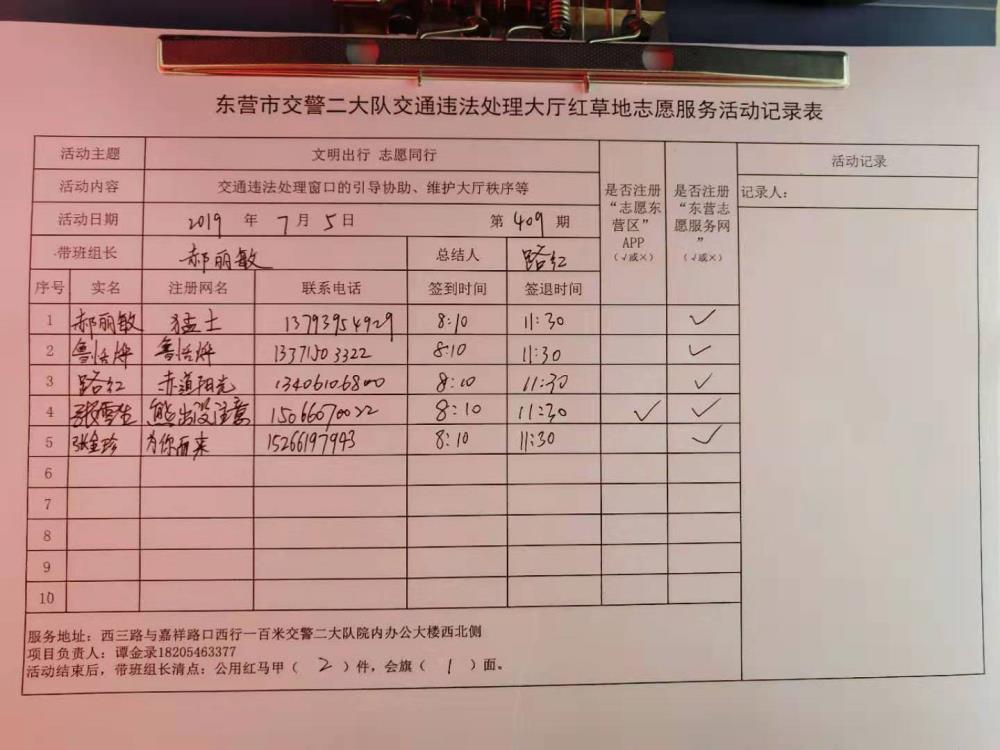 东营市交警二大队交通违法处理大厅红草地志愿服务活动记录表
活动主题 文明出行 志愿同行
活动内容 交通违法处理窗口的引导协助、维护大厅秩序等
活动日期 2019 年 7 月 5 日 第 409 期
带班组长 郝丽敏 总结人 路红
是否注册“志愿东营区”APP（√或×）
是否注册“东营志愿服务网”（√或×）
活动记录
记录人：
序号 实名 注册网名 联系电话 签到时间 签退时间
1 郝丽敏 猛士 13793954929 8:10 11:30 ✓
2 鲁恬烨 鲁恬烨 1371503322 8:10 11:30 ✓
3 路红 赤道阳光 13406106800 8:10 11:30 ✓
4 张雪生 熊出没注意 15066070022 8:10 11:30 ✓ ✓
5 张金珍 为你而来 15266197993 8:10 11:30 ✓
6
7
8
9
10
服务地址：西三路与嘉祥路口西行一百米交警二大队院内办公大楼西北侧
项目负责人：谭金录18205463377
活动结束后，带班组长清点：公用红马甲（ 2 ）件，会旗（ 1 ）面。